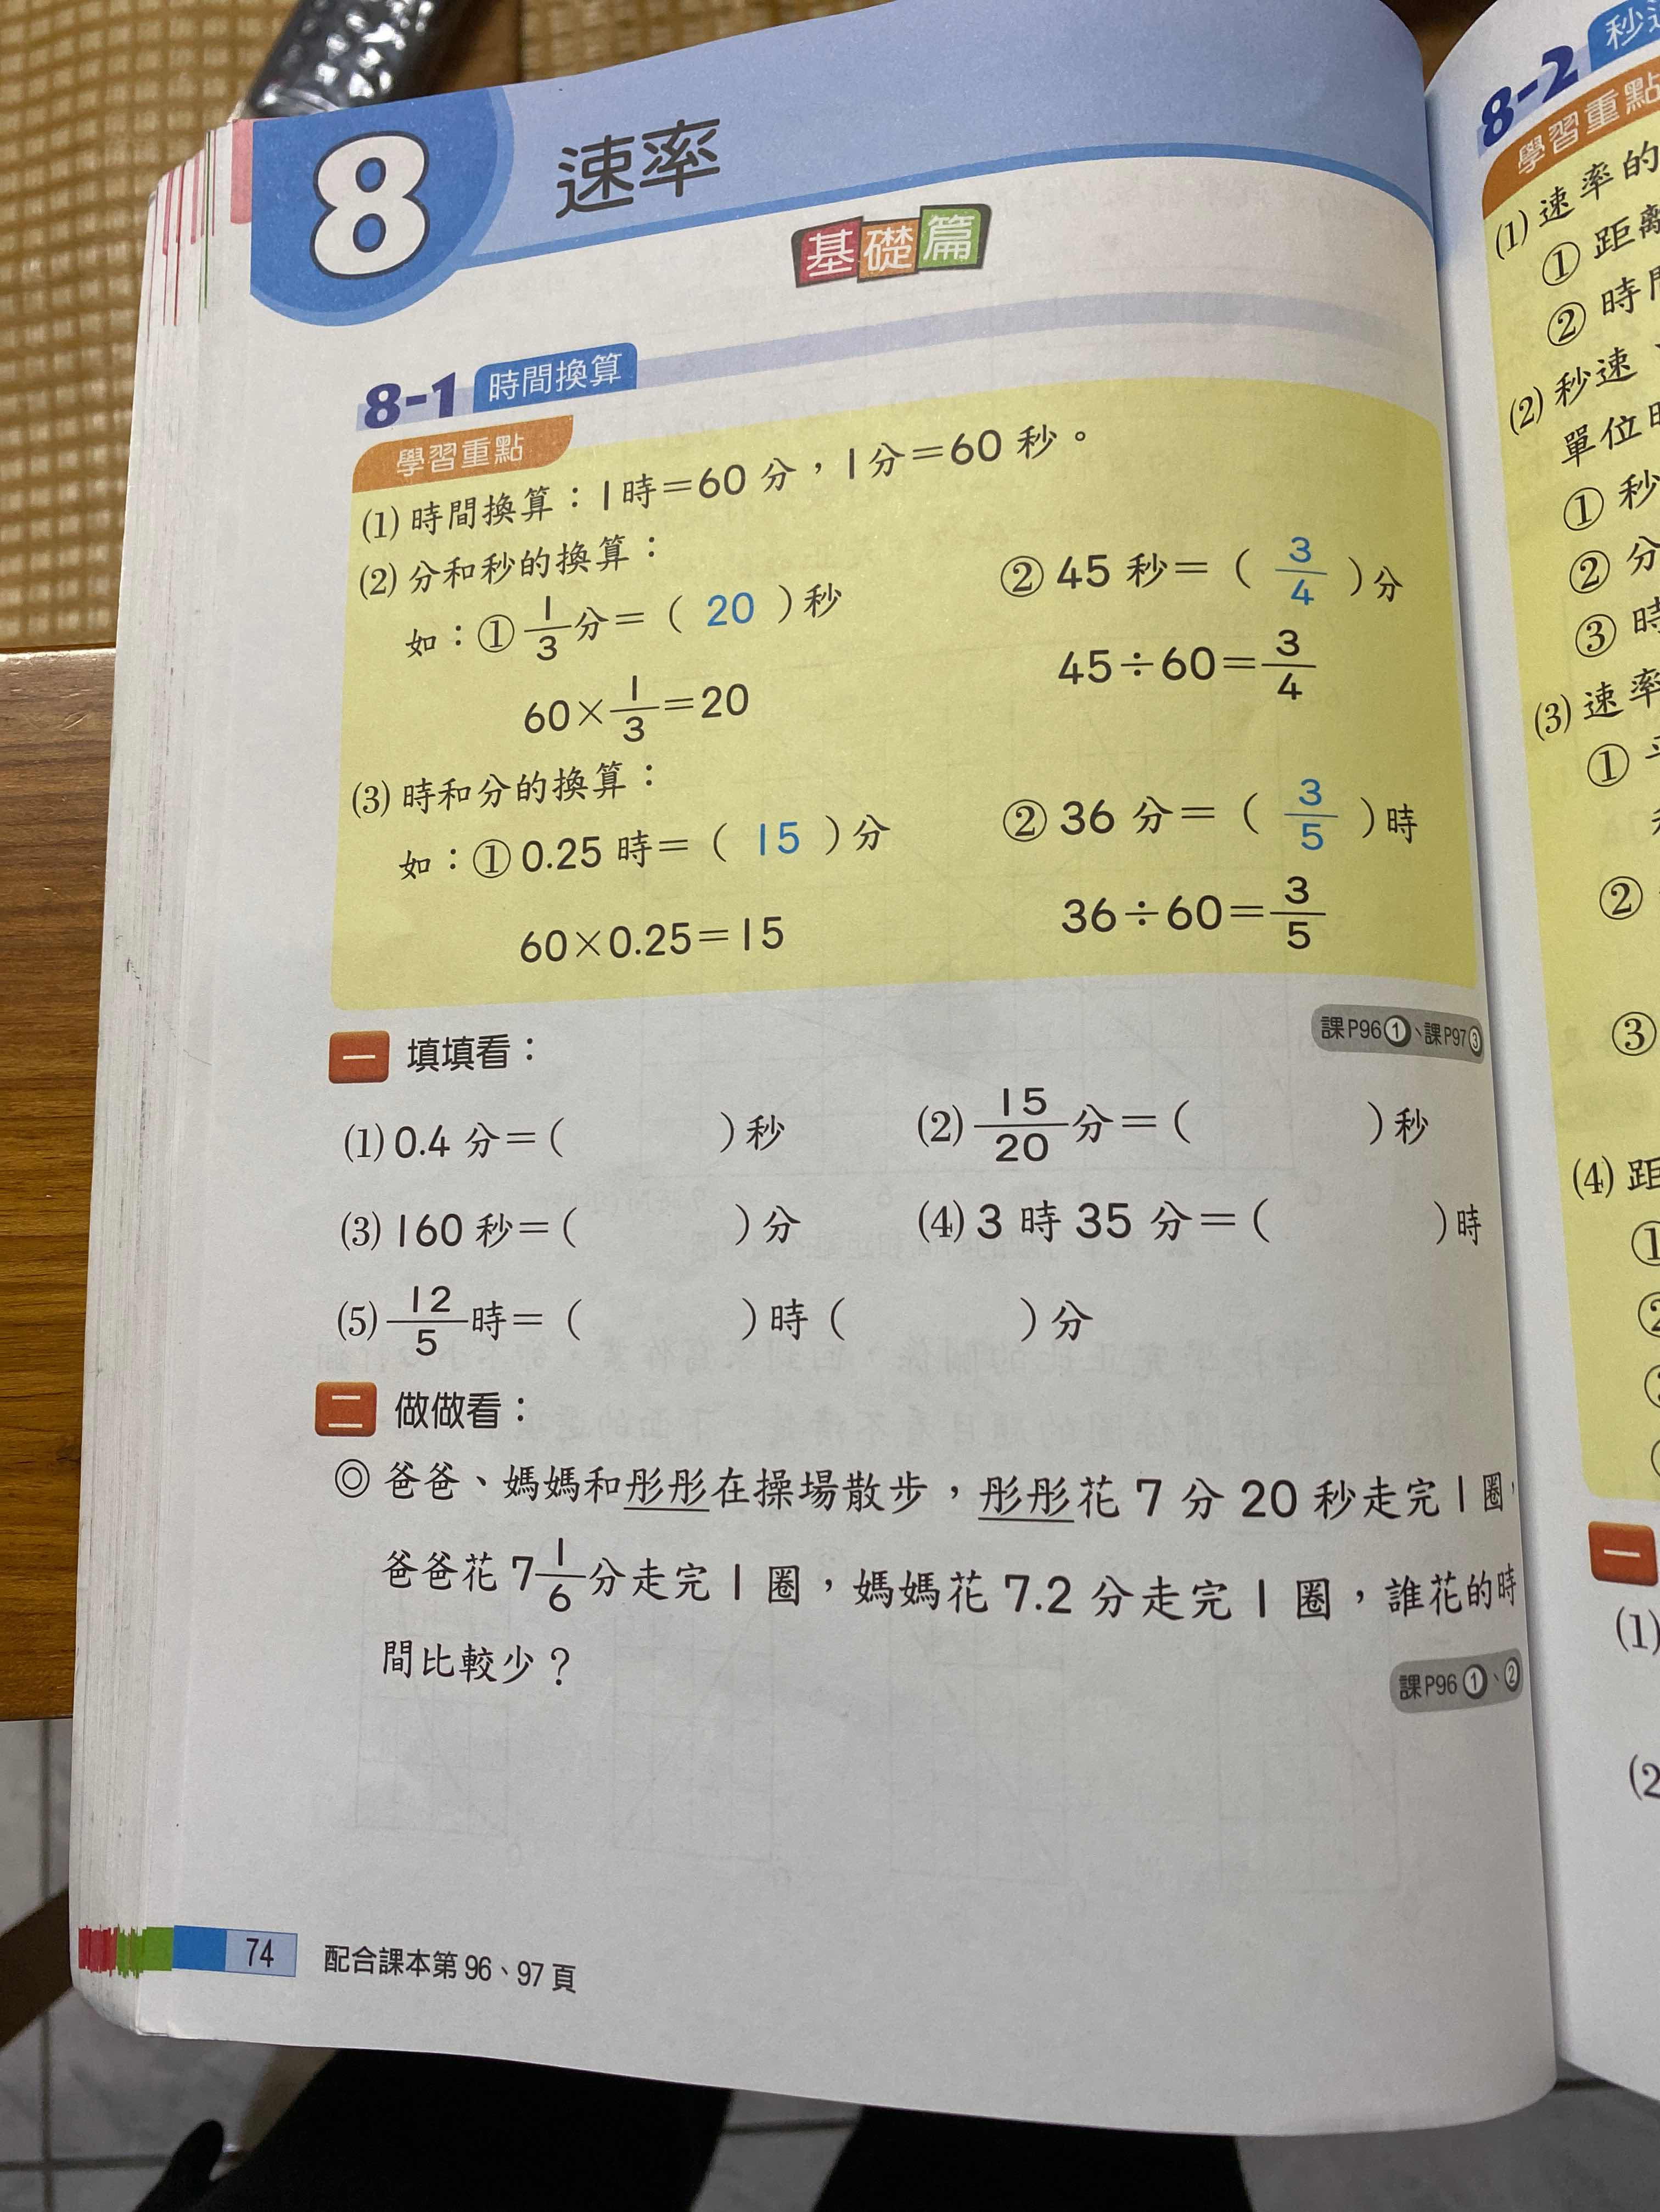 8 速率
基礎篇
8-1 時間換算
學習重點
(1) 時間換算：1時＝60 分，1分＝60 秒。
(2) 分和秒的換算：
如：① 1/3 分＝（ 20 ）秒 ② 45 秒＝（ 3/4 ）分
60×1/3＝20 45÷60＝3/4
(3) 時和分的換算：
如：① 0.25 時＝（ 15 ）分 ② 36 分＝（ 3/5 ）時
60×0.25＝15 36÷60＝3/5
一 填填看： 課P96①、課P97③
(1) 0.4 分＝（ ）秒 (2) 15/20 分＝（ ）秒
(3) 160 秒＝（ ）分 (4) 3 時 35 分＝（ ）時
(5) 12/5 時＝（ ）時（ ）分
二 做做看：
◎ 爸爸、媽媽和彤彤在操場散步，彤彤花 7 分 20 秒走完 1 圈，
爸爸花 7 1/6 分走完 1 圈，媽媽花 7.2 分走完 1 圈，誰花的時
間比較少？
課P96①、②
74 配合課本第 96、97 頁
8-2 秒
學習重點
(1) 速率的
① 距離
② 時
(2) 秒速
單位
① 秒
② 分
③ 時
(3) 速率
①
②
③
(4) 距
一
(1)
(2